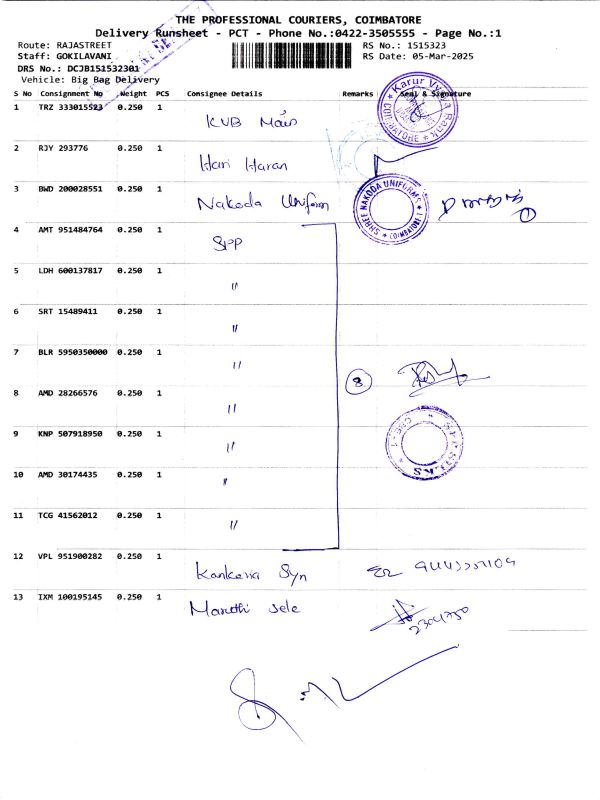 THE PROFESSIONAL COURIERS, COIMBATORE
Delivery Runsheet - PCT - Phone No.:0422-3505555 - Page No.:1
Route: RAJASTREET RS No.: 1515323
Staff: GOKILAVANI RS Date: 05-Mar-2025
DRS No.: DCJB151532301
Vehicle: Big Bag Delivery
S No Consignment No Weight PCS Consignee Details Remarks Seal & Signature
1 TRZ 333015523 0.250 1 KVB Main
Karur Vysya Bank
COIMBATORE
2 RJY 293776 0.250 1 Hari Haran
3 BWD 200028551 0.250 1 Nakoda Uniform
SHREE NAKODA UNIFORMS
4 AMT 951484764 0.250 1 SPP
5 LDH 600137817 0.250 1 "
6 SRT 15489411 0.250 1 "
7 BLR 5950350000 0.250 1 " 8
8 AMD 28266576 0.250 1 "
9 KNP 507918950 0.250 1 "
CBE-1
10 AMD 30174435 0.250 1 "
11 TCG 41562012 0.250 1 "
12 VPL 951900282 0.250 1 Kankeria Syn
13 IXM 100195145 0.250 1 Maruthi Sele